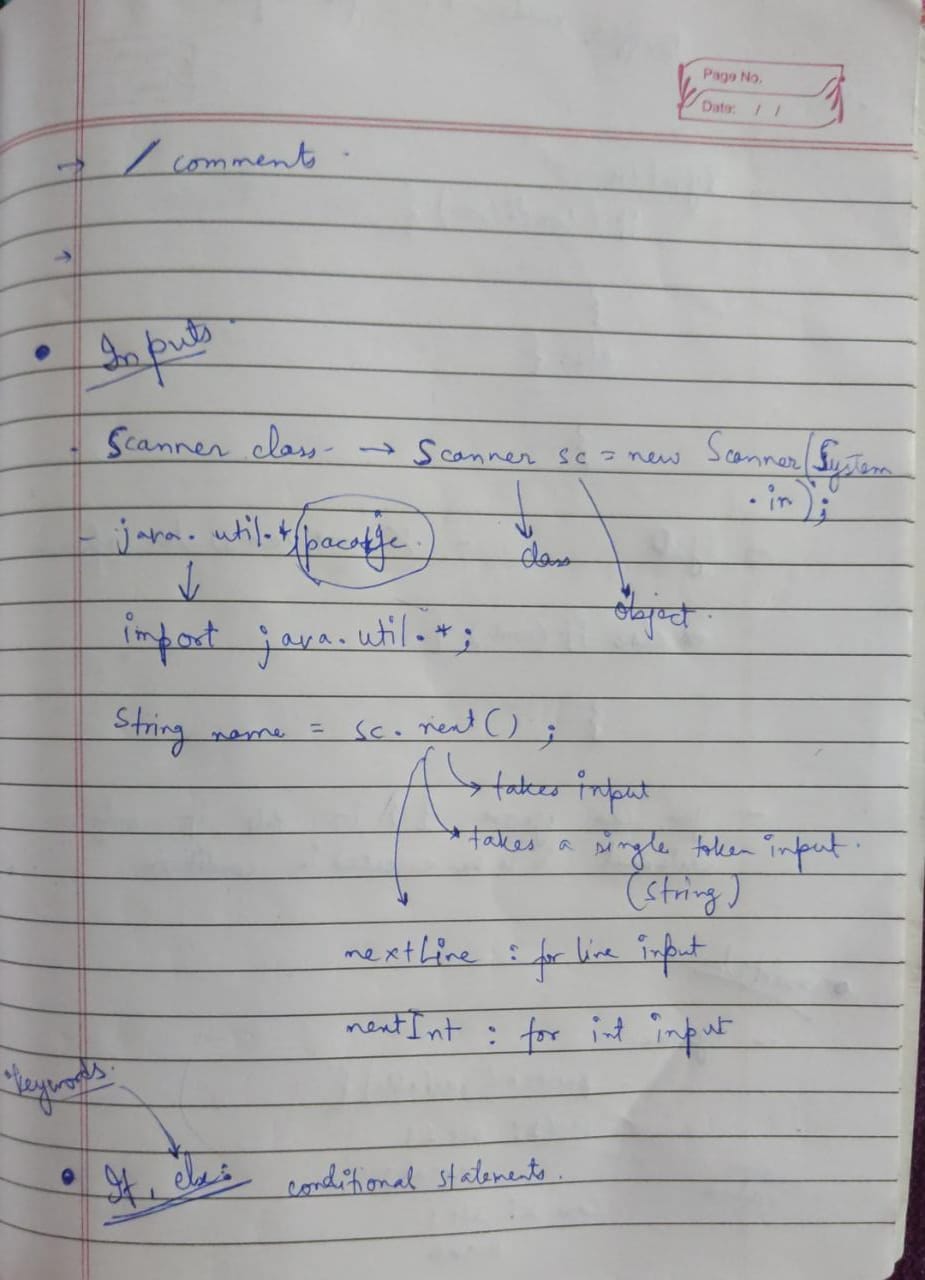 Page No.
Date: / /
→ / comments.
→
• Inputs
- Scanner class → Scanner sc = new Scanner(System
.in);
class
object.
- java.util.*
import java.util.*;
String name = sc.next();
takes input
takes a single token input.
(String)
nextLine : for line input
nextInt : for int input
keywords.
• If, else: conditional statements.